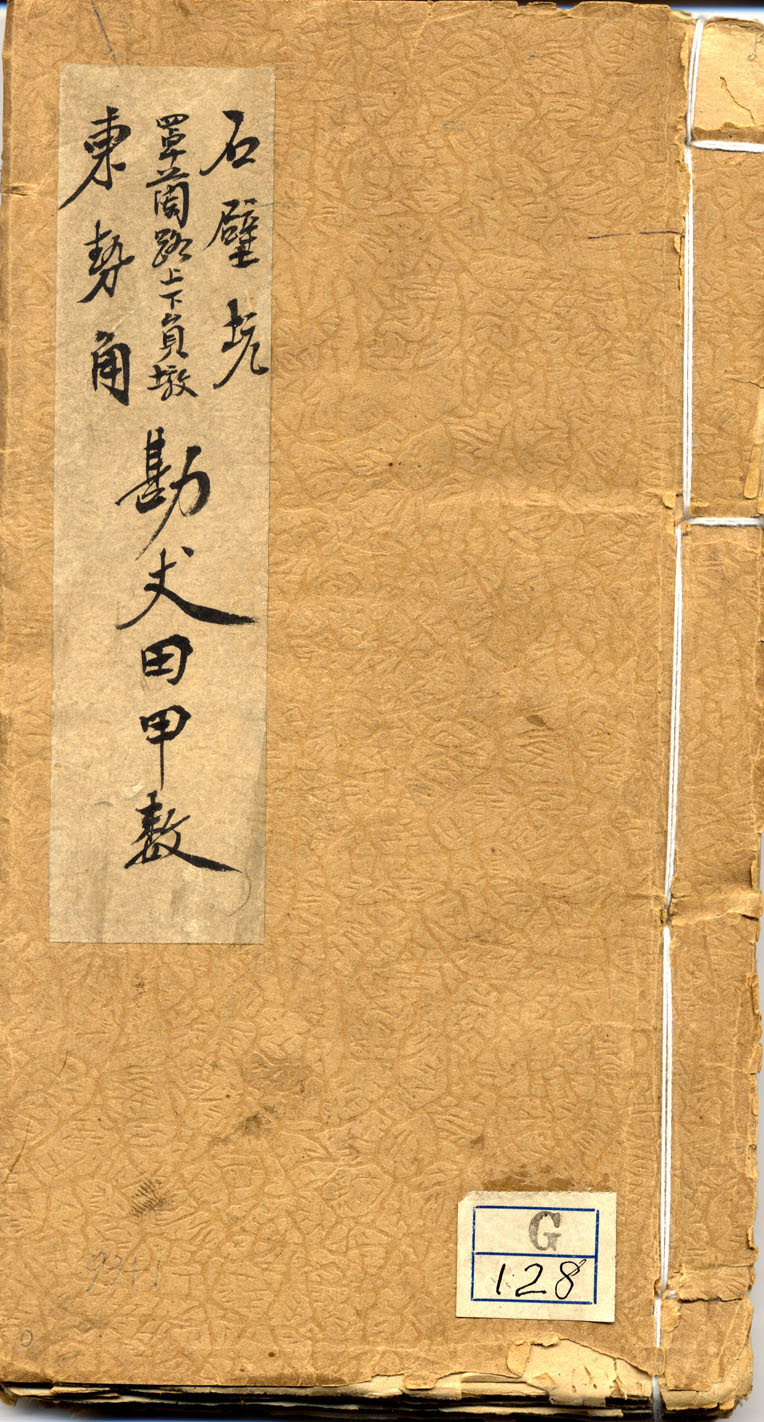 石壁坑
罩蘭路上下員墩
東勢角
勘丈田甲數
G
128